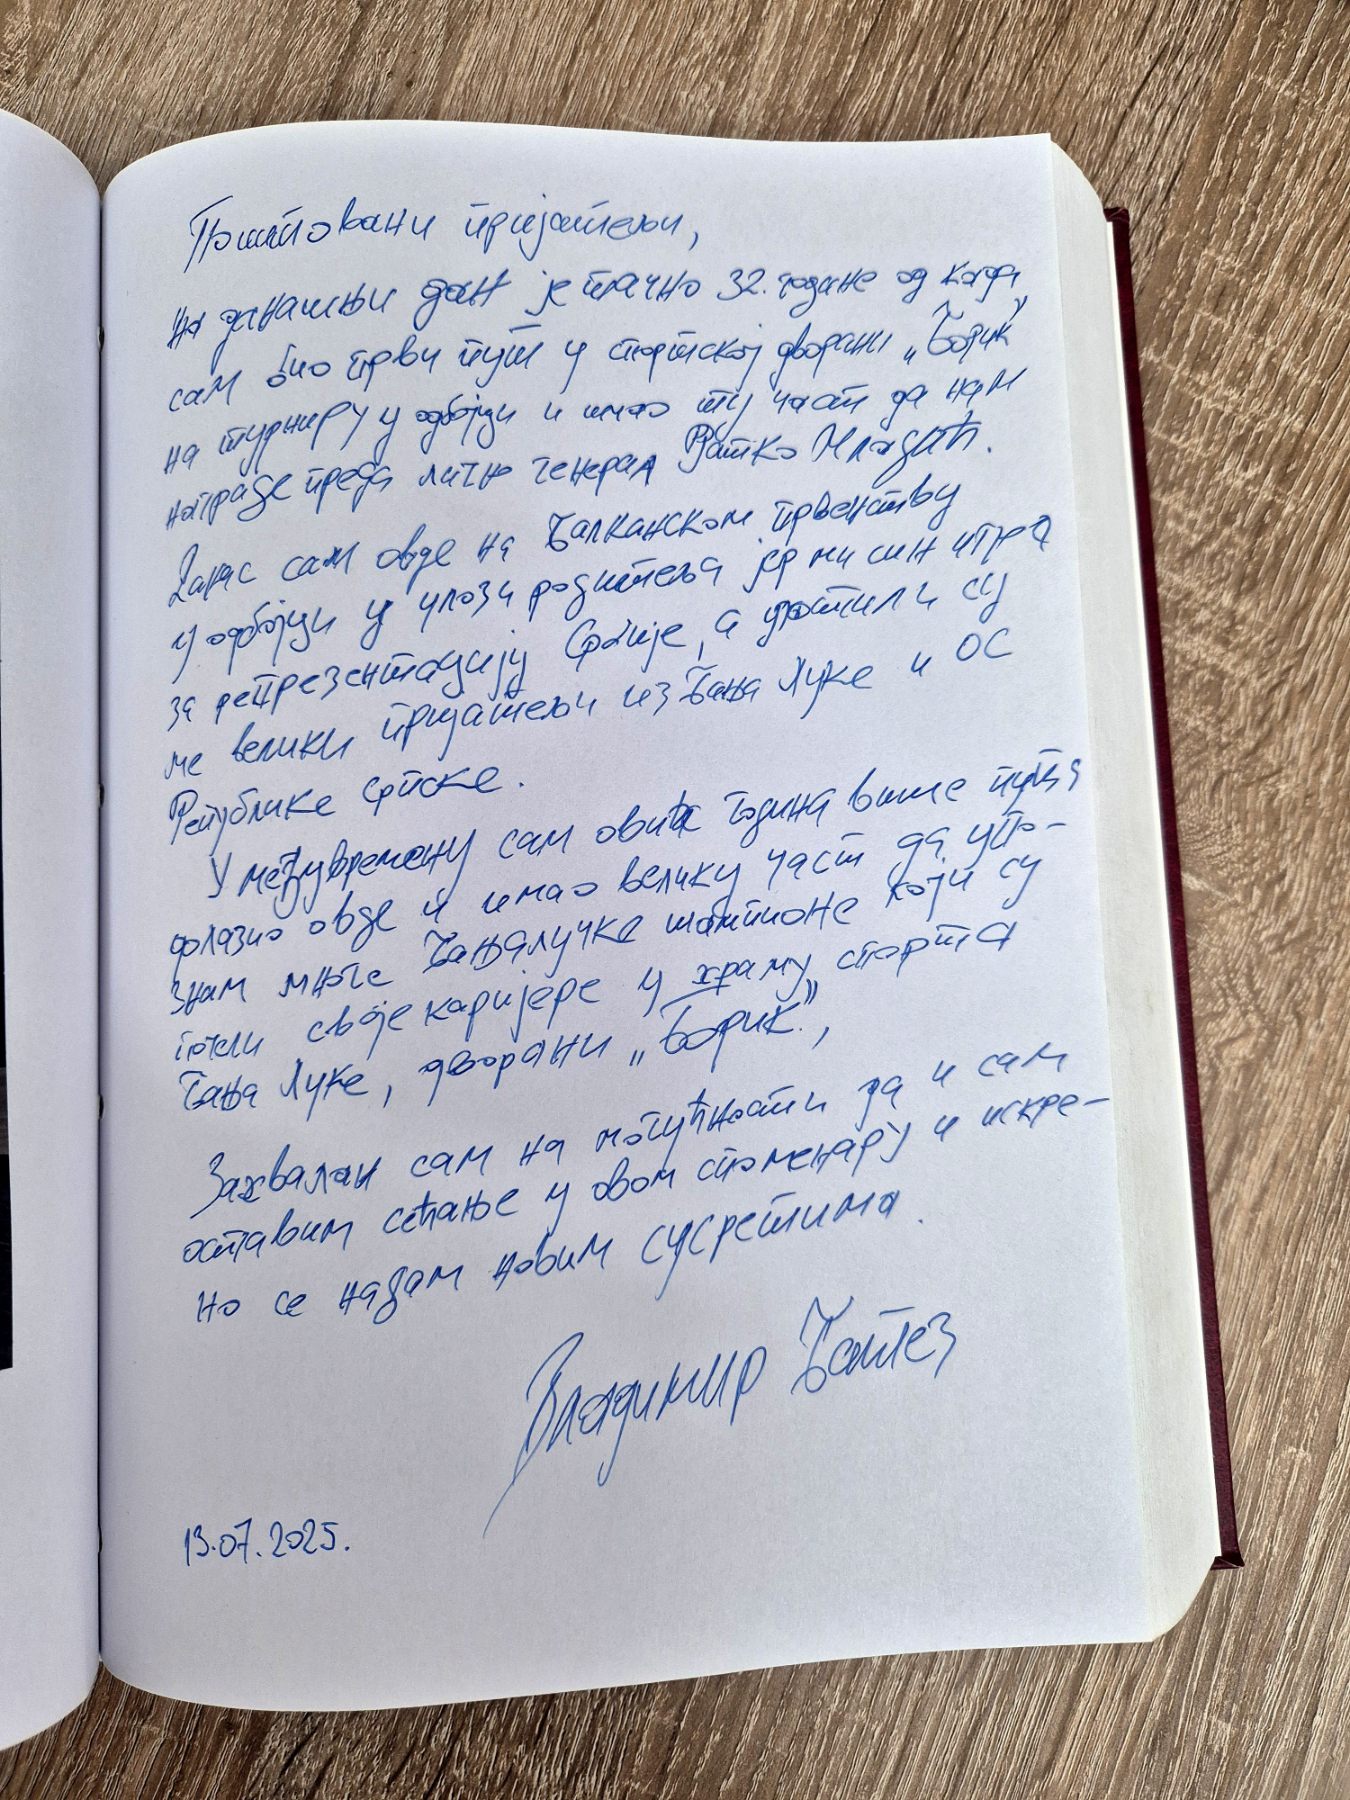 Поштовани пријатељи,
на данашњи дан је тачно 32. године од када
сам био први пут у спортској дворани „Борик”
на турниру у одбојци и имао ту част да нам
награде преда лично генерал Ратко Младић.
Данас сам овде на Балканском првенству
у одбојци у улози родитеља јер ми син игра
за репрезентацију Србије, а угостили су
ме велики пријатељи из Бања Луке и ОС
Републике Српске.
У међувремену сам ових година више пута
долазио овде и имао велику част да упо-
знам многе Бањалучке шампионе који су
почели своје каријере у храму спорта
Бања Луке, дворани „Борик”,
Захвалан сам на могућности да и сам
оставим сећање у овом споменару и искре-
но се надам новим сусретима.
Владимир Батез
13.07.2025.